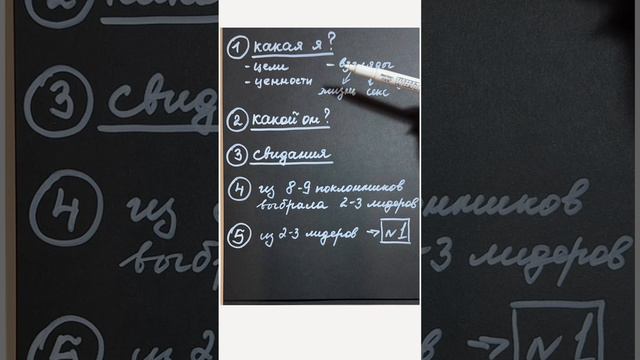 ① какая я?
- цели - взгляды
- ценности
жизнь секс
② какой он?
③ свидания
④ из 8-9 поклонников
выбрала 2-3 лидеров
⑤ из 2-3 лидеров → №1